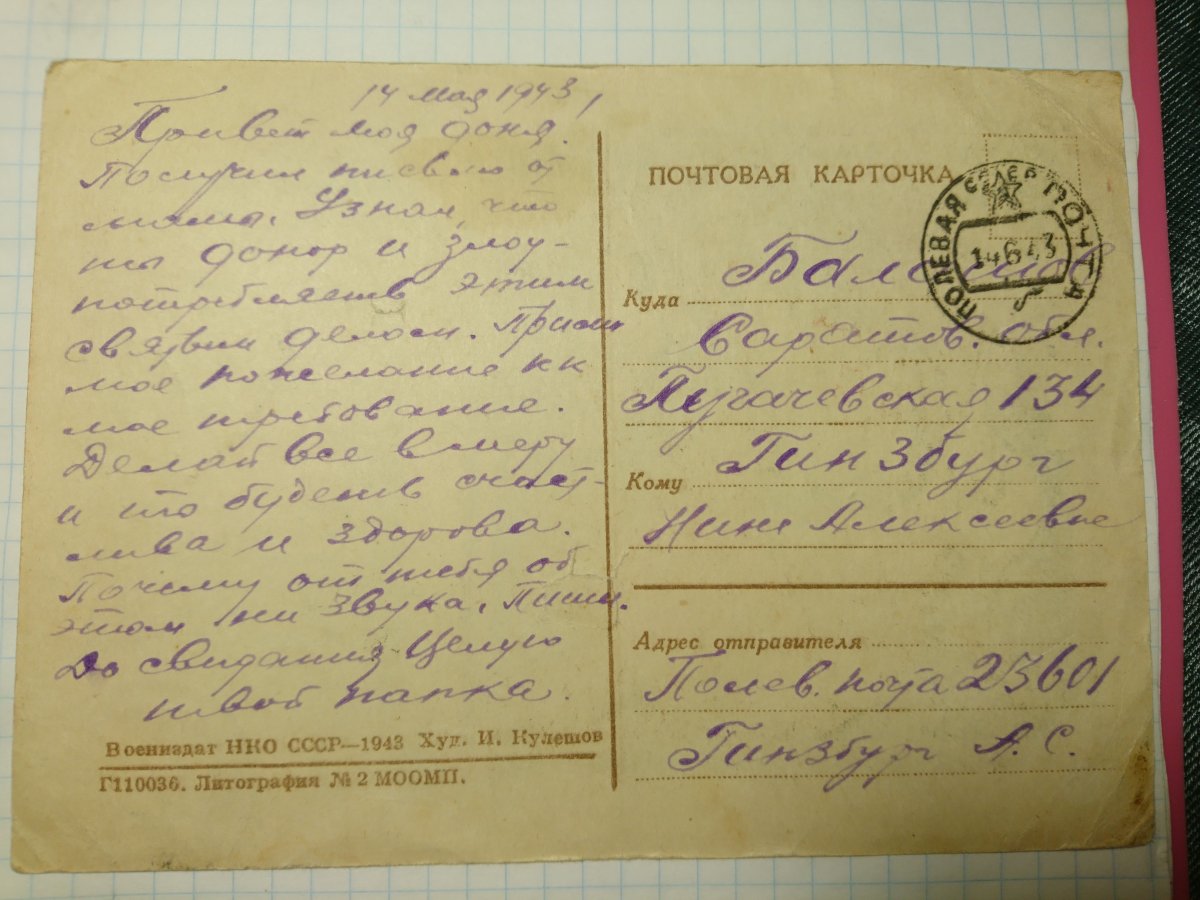 14 мая 1943
Привет моя доня.
Получил письмо от
мамы. Узнал, что
ты донор и злоу-
потребляешь этим
святым делом. Прими
мое пожелание кк
мое требование.
Делай все в меру
и то будешь счаст-
лива и здорова.
Почему от тебя об
этом ни звука. Пиши.
До свидания Целую
твой папка.
Воениздат НКО СССР—1943 Худ. И. Кулешов
Г110036. Литография № 2 МООМП.
ПОЧТОВАЯ КАРТОЧКА
ПОЛЕВАЯ ПОЧТА
14 6 43
Куда Балашов
Саратов. обл.
Пугачевская 134
Кому Гинзбург
Нине Алексеевне
Адрес отправителя
Полев. почта 23601
Гинзбург А. С.